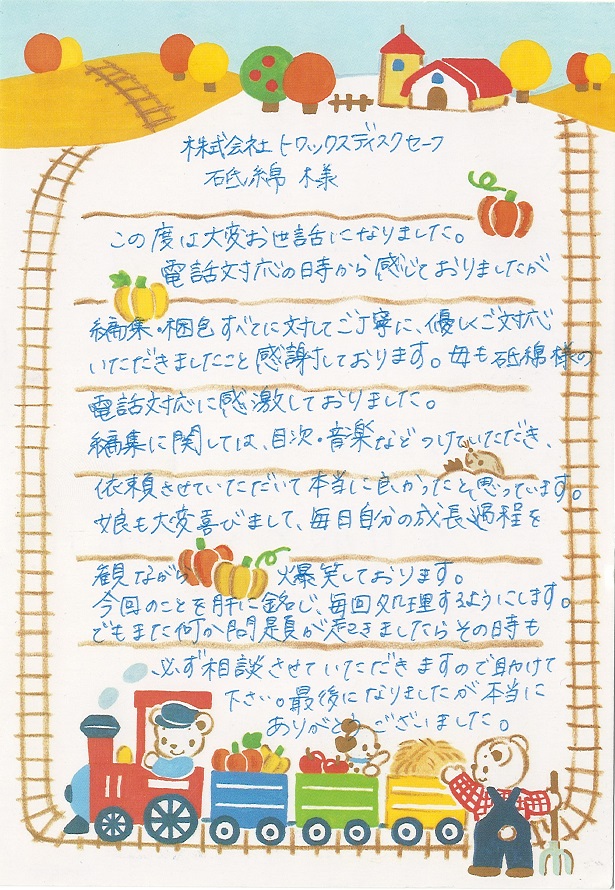 株式会社トワックスディスクセーフ
砥綿 様
この度は大変お世話になりました。
電話対応の時から感じておりましたが
編集・梱包すべてに対してご丁寧に、優しくご対応
いただきましたこと感謝しております。母も砥綿様の
電話対応に感激しておりました。
編集に関しては、目次・音楽などつけていただき、
依頼させていただいて本当に良かったと思っています。
娘も大変喜びまして、毎日自分の成長過程を
観ながら爆笑しております。
今回のことを肝に銘じ、毎回処理するようにします。
でもまた何か問題が起きましたらその時も
必ず相談させていただきますので助けて
下さい。最後になりましたが本当に
ありがとうございました。